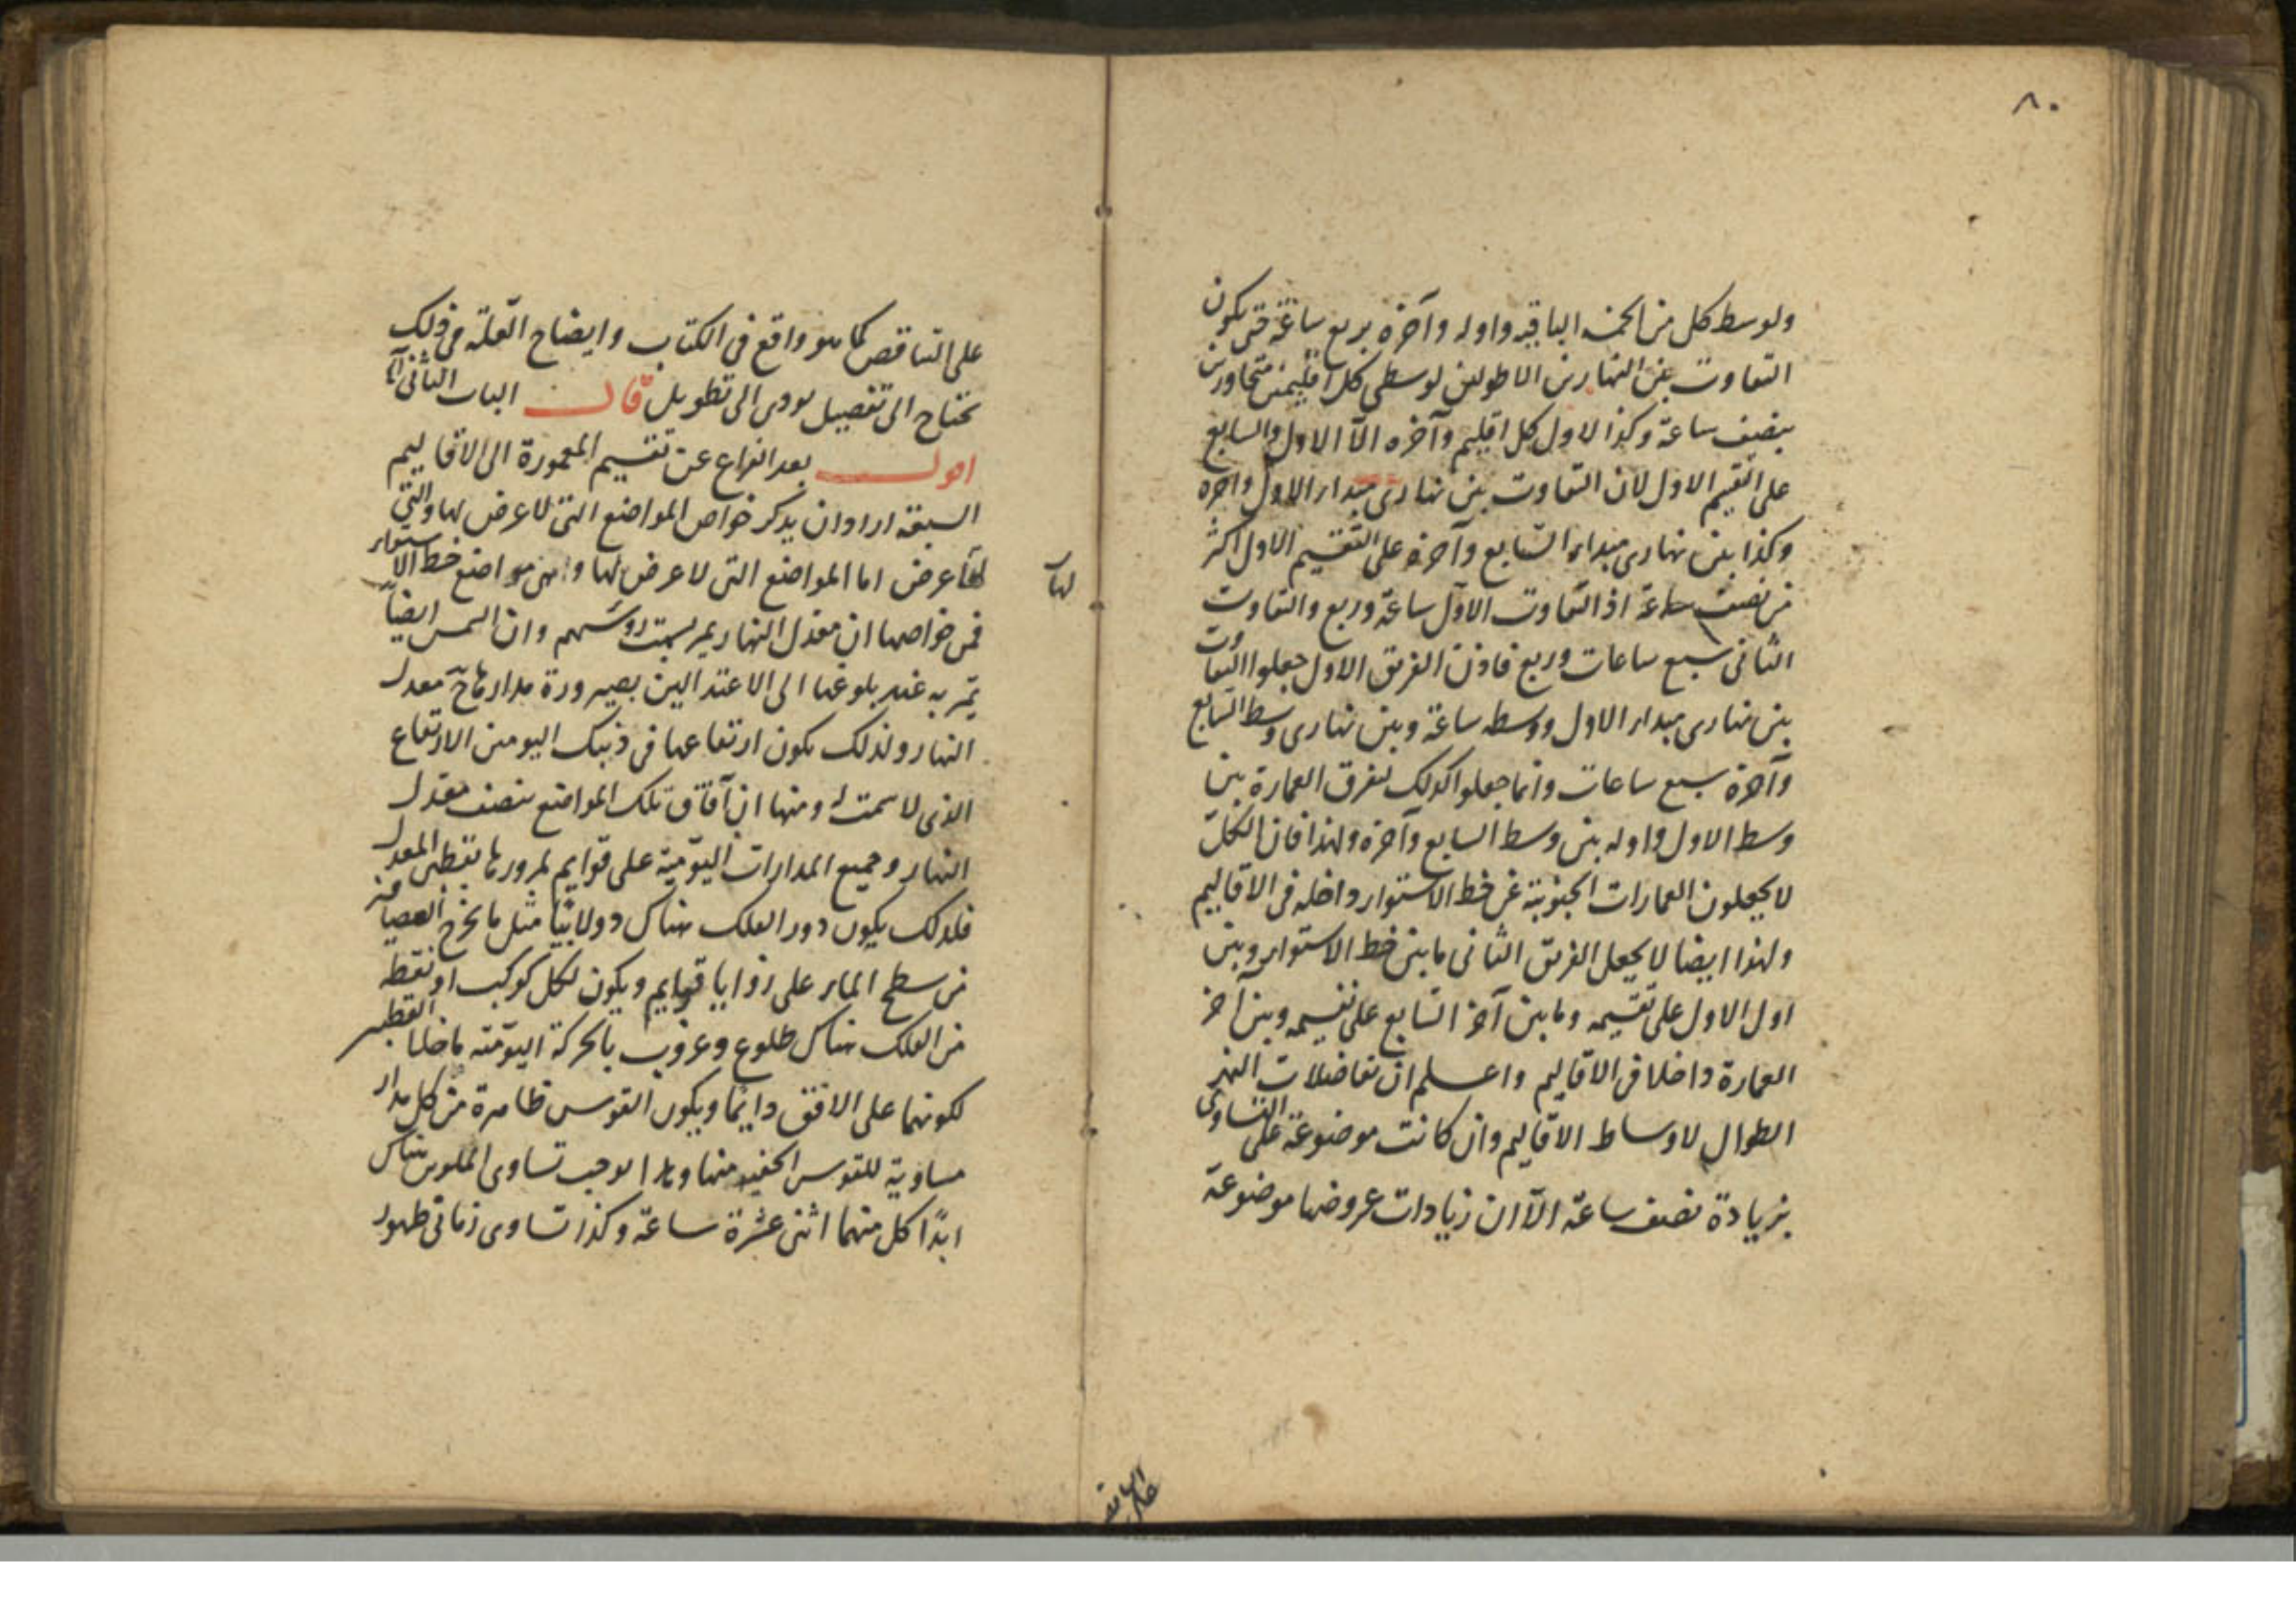 ٨٠
ولوسط كل من الخمسة الباقية واوله وآخره بربع ساعة حتى يكون
التفاوت بين النهارين الاطولين لوسطى كل اقليمين متجاورين
بنصف ساعة وكذا الاول كل اقليم وآخره الا الاول والسابع
على التقسيم الاول لان التفاوت بين نهارى مبداء الاول وآخره
وكذا بين نهارى مبداء السابع وآخره على التقسيم الاول اكثر
من نصف ساعة اذ التفاوت الاول ساعة وربع والتفاوت
الثانى سبع ساعات وربع فاذن الفريق الاول جعلوا التفاوت
بين نهارى مبداء الاول ووسطه ساعة وبين نهارى وسط السابع
وآخره سبع ساعات وانما جعلوا كذلك لتفرق العمارة بين
وسط الاول واوله بين وسط السابع وآخره ولهذا فان الكل
لا يجعلون العمارات الجنوبية عن خط الاستواء داخله فى الاقاليم
ولهذا ايضا لا يجعل الفريق الثانى ما بين خط الاستواء وبين
اول الاول على تقسيمه وما بين آخر السابع على تقسيمه وبين آخر
العمارة داخلا فى الاقاليم واعلم ان تفاضلات النهر
الطوال لاوساط الاقاليم وان كانت موضوعة على التساوى
بزيادة نصف ساعة الا ان زيادات عروضها موضوعة
على التناقص كما هو واقع فى الكتاب وايضاح العلة فى ذلك
تحتاج الى تفصيل يودى الى تطويل قال الباب الثانى
اقول بعد الفراغ عن تقسيم المعمورة الى الاقاليم
السبعة اراد ان يذكر خواص المواضع التى لا عرض لها والتى
لها عرض اما المواضع التى لا عرض لها وهى مواضع خط الاستواء
لها
فمن خواصها ان معدل النهار يمر بسمت رؤسهم وان الشمس ايضا
تمر به عند بلوغها الى الاعتدالين بصيرورة مدارها ح معدل
النهار ولذلك يكون ارتفاعها فى ذينك اليومين الارتفاع
الذى لا سمت له ومنها ان آفاق تلك المواضع ينصف معدل
النهار وجميع المدارات اليومية على قوايم لمرورها بقطبى المعدل
فلذلك يكون دور الفلك هناك دولابيا مثل ما يخرج العصامير
من سطح الماء على زوايا قوايم ويكون لكل كوكب او نقطة
من الفلك هناك طلوع وغروب بالحركة اليومية ما خلا القطبين
لكونهما على الافق دايما ويكون القوس ظاهرة من كل مدار
مساوية للقوس الخفية منها وهذا يوجب تساوى الملوين هناك
ابدا كل منهما اثنى عشرة ساعة وكذا تساوى زمانى ظهور